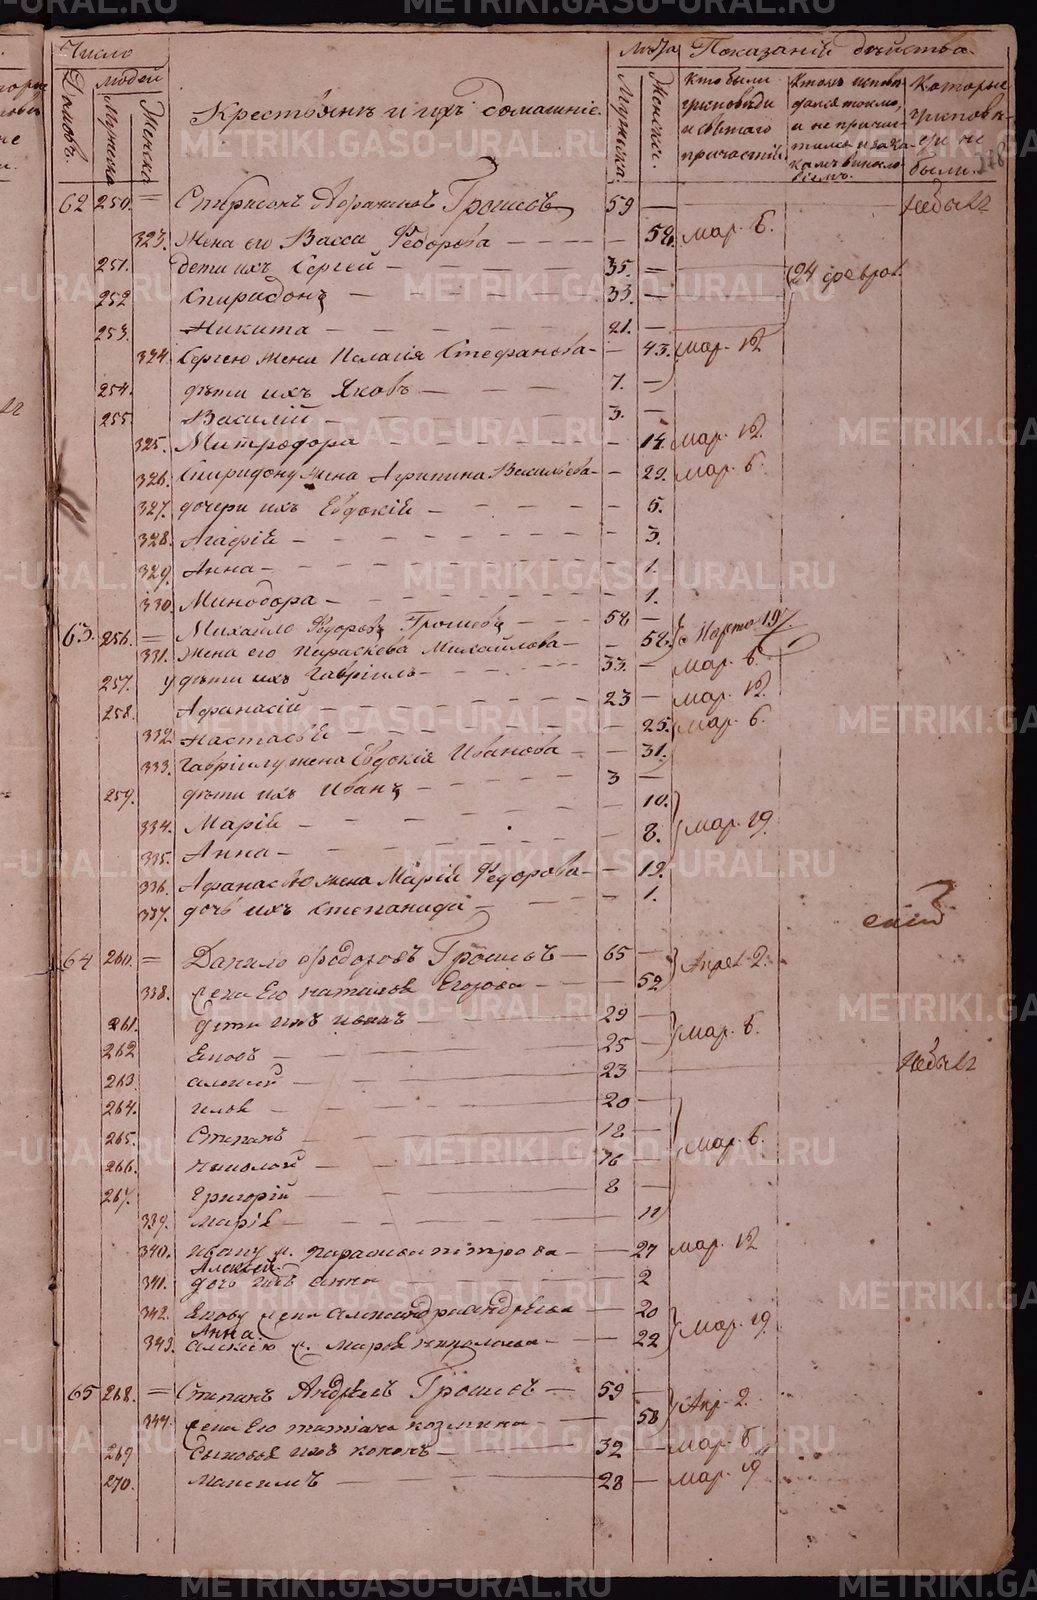 Число
Лѣта Показанiе дѣйства.
Домовъ. Людей
Мужеска Женска
Крестьянъ и ихъ домашнiе.
Мужеска. Женска.
Кто были
исповѣди
и святаго
причастiя
и не причас-
Которые
исповѣ-
ди не
были.
62 250. Грошевъ 59 Не былъ
323. Жена его Васса Федорова 58. мар. 6.
251. дети ихъ Сергей 35. 24 февра.
252 Спиридонъ 33.
253. Никита 21.
324. Сергею жена Пелагiя Стефанова 43. мар. 12
254. дѣти ихъ Яковъ 7.
255. Василiй 3.
325. Митродора 14. мар. 12.
326. Спиридону жена Агрипина Васильева 29. мар. 6.
327. дочери ихъ Евдокiй 5.
328. Агафiй 3.
329. Анна 1.
330. Минодора 1.
63. 256. Михайло Федоровъ Грошевъ 58
331. Жена его Параскева Михайлова 58. Марта 19
257. дѣти ихъ Гаврiилъ 33. мар. 6.
258. Афанасiй 23 мар. 12.
332. Настасья 25. мар. 6.
333. Гаврiилу жена Евдокiя Иванова 31.
259. дѣти ихъ Иванъ 3
334. Марiй 10.
335. Анна 8. мар. 19.
336. Афанасью жена Марiй Федорова 19.
337. дочь ихъ Степанида 1.
64 260. Данило Федоровъ Грошевъ 65 Апрел 2.
338. жена Его Наталья Егорова 52
261. дети ихъ иванъ 29 мар. 6.
262 Яковъ 25
263. алексей 23 Не былъ
264. илья 20
265. Степанъ 18 мар. 6.
266. николай 16
267. Григорiй 8
339. марiя 11
340. ивану ж. парасковья петрова 27 мар. 12
Алексей
341. дочь ихъ анна 2
342. Якову жена александра андреева 20
Анна
343. алексею ж. марья николаева 22 мар. 19.
65 268. Степанъ Андреевъ Грошевъ 59 Апр. 2.
344. жена Его татiана козмина 58
269 Сыновья ихъ кононъ 32 мар. 6
270. максимъ 28 мар. 19
METRIKI.GASO-URAL.RU